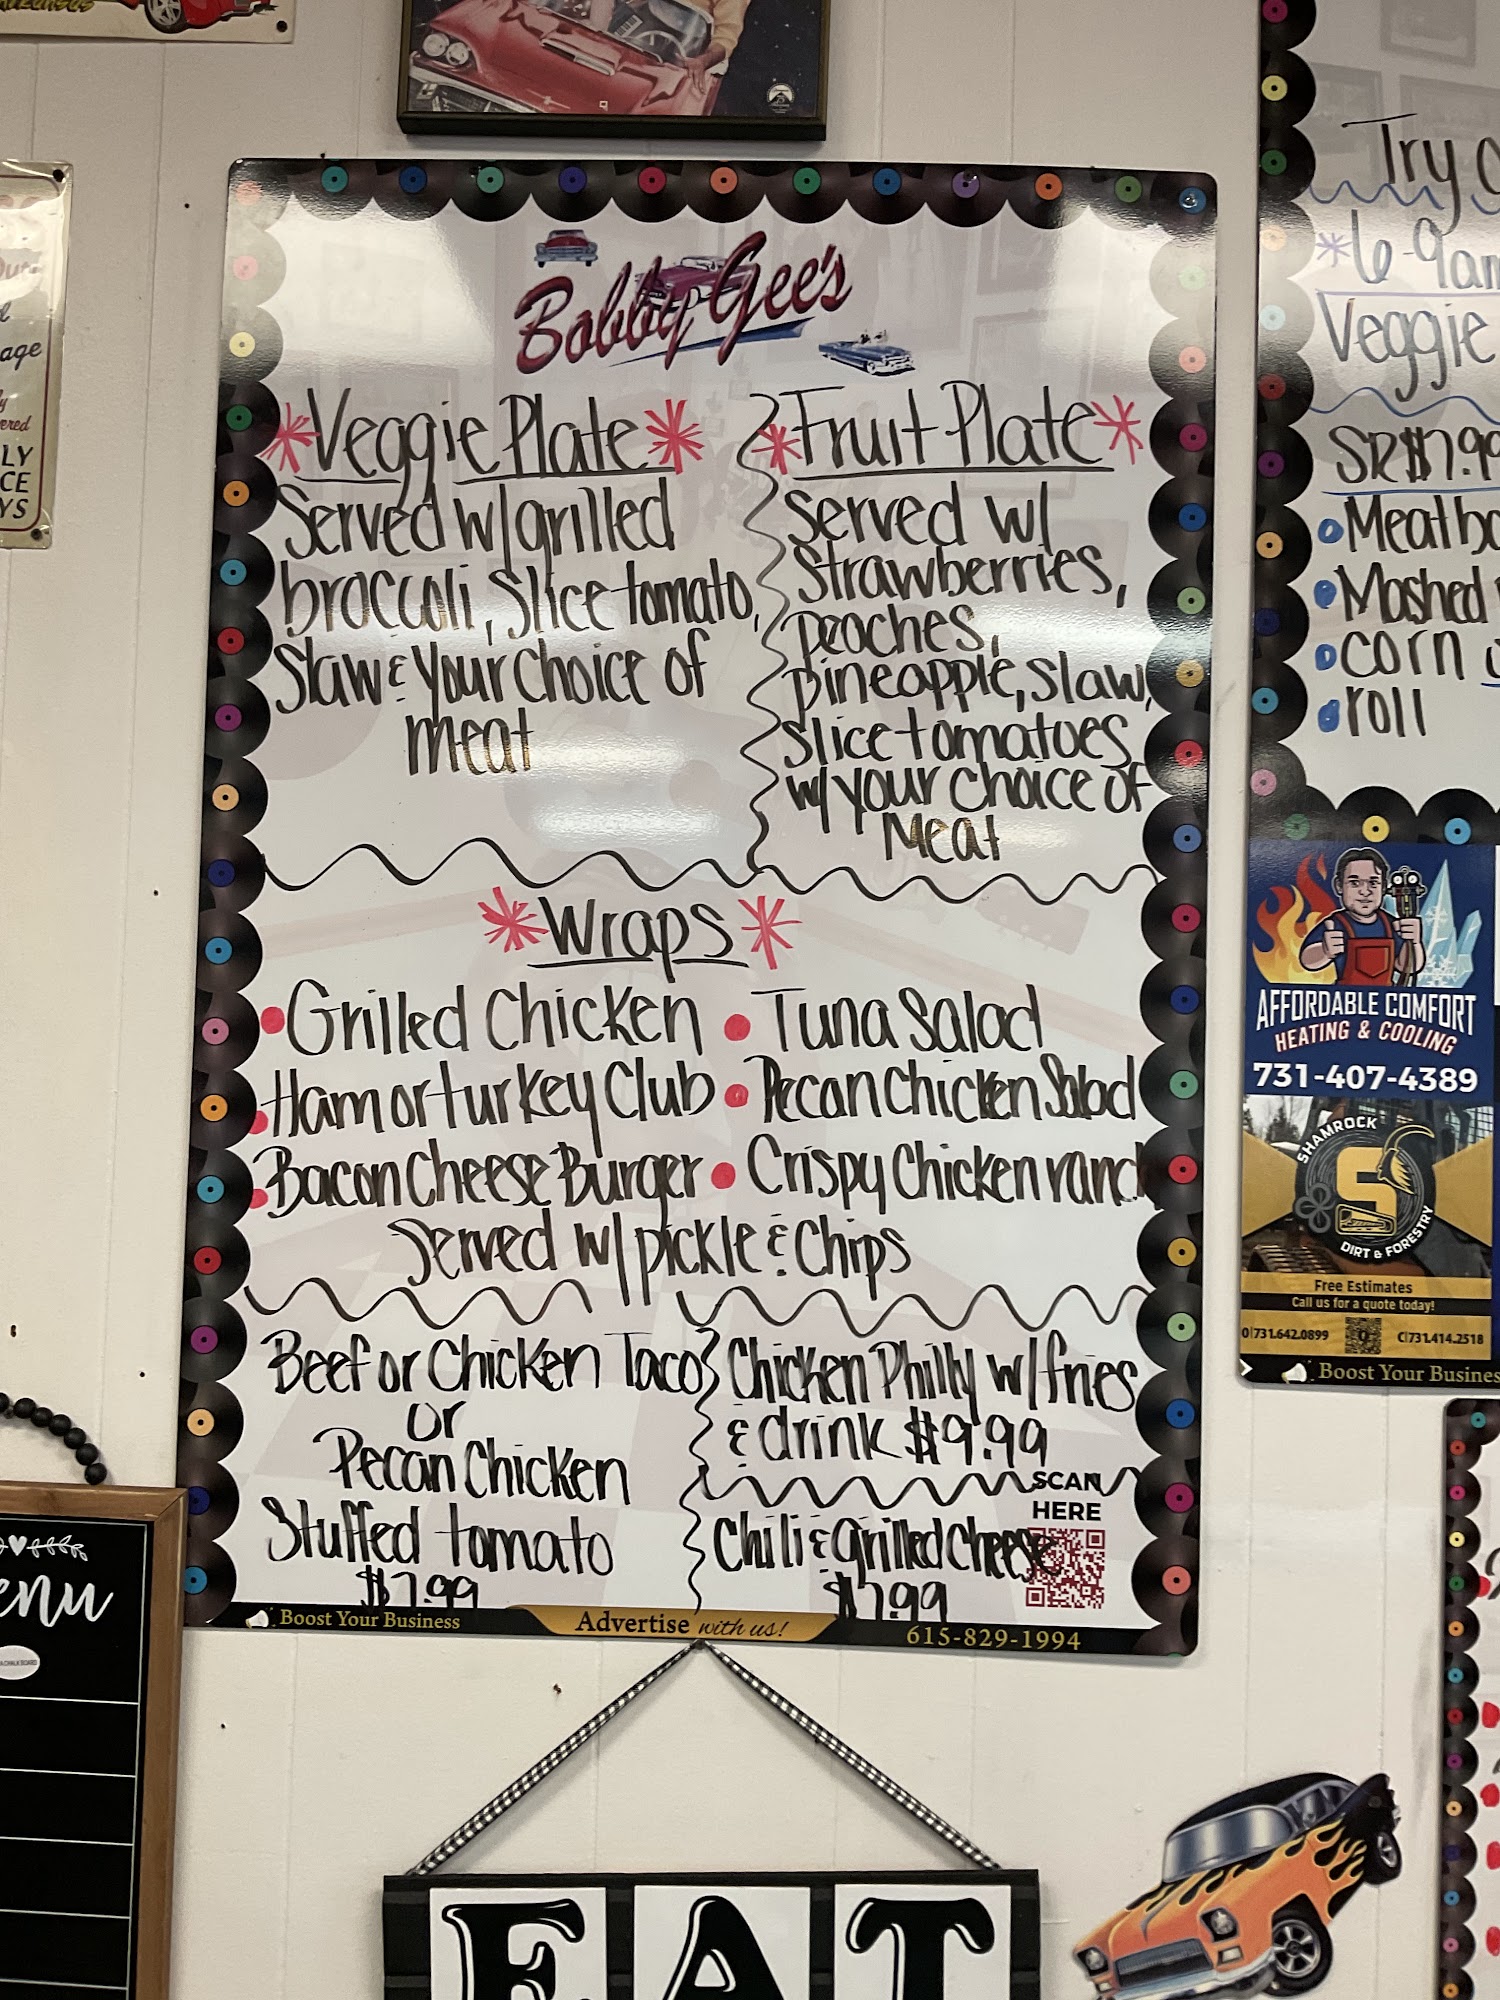 Bobby Gee's
*Veggie Plate*
Served w/ grilled
broccoli, Slice tomato,
Slaw & your choice of
meat
*Fruit Plate*
Served w/
Strawberries,
peaches,
pineapple, slaw,
slice tomatoes
w/ your choice of
Meat
*Wraps*
• Grilled Chicken
• Ham or turkey Club
• Bacon Cheese Burger
• Tuna Salad
• Pecan Chicken Salad
• Crispy Chicken ranch
Served w/ pickle & Chips
Beef or Chicken Taco
or
Pecan Chicken
Stuffed tomato
$7.99
Chicken Philly w/ fries
& drink $9.99
Chili & Grilled Cheese
$7.99
SCAN
HERE
Boost Your Business
Advertise with us!
615-829-1994
Try
*6-9am
Veggie
SR $7.99
Meatba
Mashed
corn
roll
AFFORDABLE COMFORT
HEATING & COOLING
731-407-4389
SHAMROCK
S
DIRT & FORESTRY
Free Estimates
Call us for a quote today!
O|731.642.0899
C|731.414.2518
Boost Your Busines
age
ered
LY
CE
YS
enu
EAT